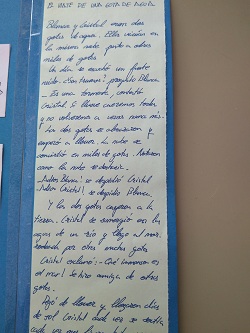 EL VIAJE DE UNA GOTA DE AGUA
Blanca y Cristal eran dos
gotas de agua. Ellas vivían en
la misma nube junto a otras
miles de gotas.
Un día se escuchó un fuerte
ruido. ¿Son truenos? preguntó Blanca
- Es una tormenta, contestó
Cristal. Si llueve caeremos
y no volveremos a vernos nunca más.
Las dos gotas se abrazaron y
empezó a llover. La nube se
convirtió en miles de gotas.
como la nube se
¡Adiós Blanca! se despidió Cristal
¡Adiós Cristal! se despidió Blanca.
Y las dos gotas cayeron a la
tierra. Cristal se sumergió en las
aguas de un río y llegó al mar.
por otras muchas gotas
Cristal exclamó: - ¡Qué inmenso es
el mar! Se hizo amiga de otras
gotas.
Dejó de llover y llegaron días
de sol. Cristal cada vez se sentía
cada vez más